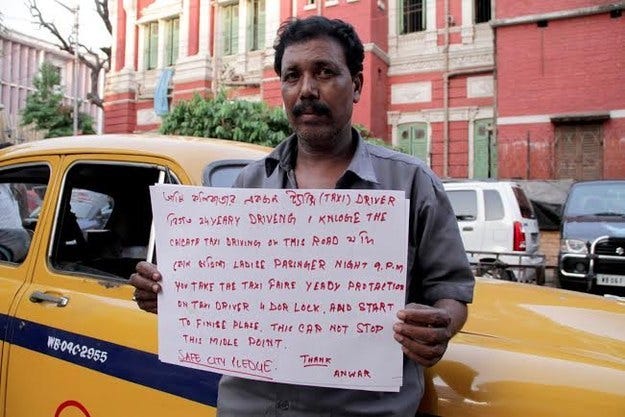 আমি কলিকাতার একজন ট্যাক্সি (TAXI) DRIVER
বিগত 24 YEARY DRIVENG I KNLOGE THE
CALCATA TAXI DRIVING ON THIS ROAD যদি
কোন মহিলা LADISE PASINGER NIGHT 9.P.M
YOU TAKE THE TAXI FAIRS YEADY PROTACTION
ON TAXI DRIVER 4 DOR LOCK. AND START
TO FINISE PLACE. THIS CAR NOT STOP
THIS MIDLE POINT.
SAFE CITY PLEDGE. THANK
ANWAR
WB-04C-2955